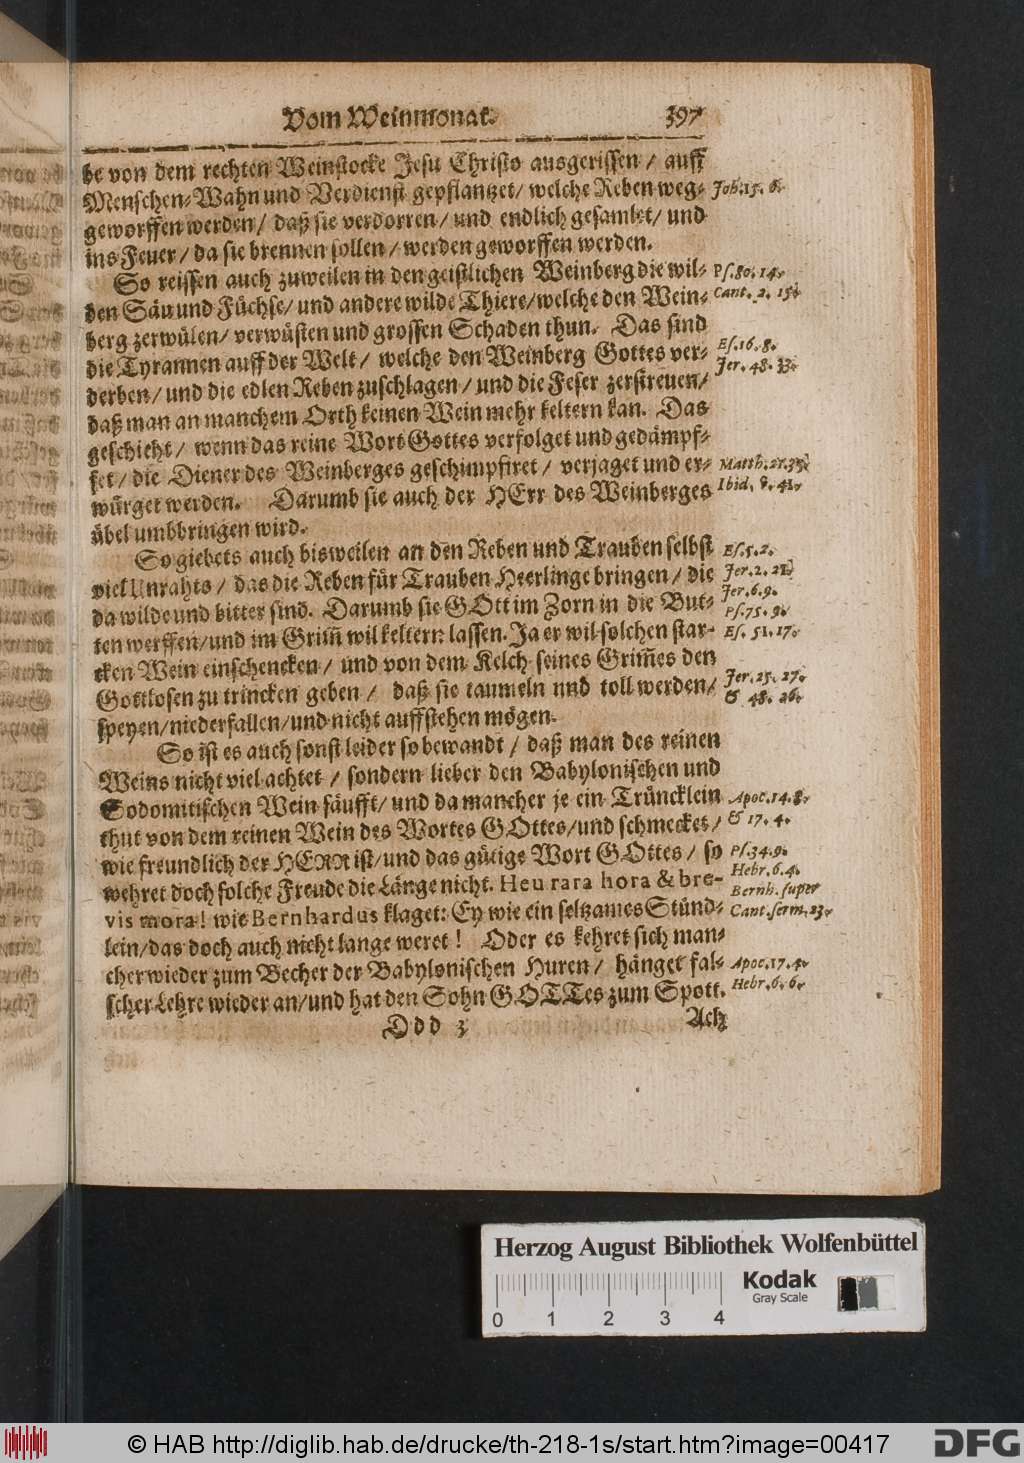 Vom Weinmonat. 397
be von dem rechten Weinstocke Jesu Christo ausgerissen / auff
Menschen-Wahn und Verdienst gepflantzet / welche Reben weg- Joh. 15. 6.
geworffen werden / daß sie verdorren / und endlich gesamlet / und
ins Feuer / da sie brennen sollen / werden geworffen werden.
So reissen auch zuweilen in den geistlichen Weinberg die wil- Ps. 80. 14.
den Säu und Füchse / und andere wilde Thiere / welche den Wein- Cant. 2. 15.
berg zerwülen / verwüsten und grossen Schaden thun. Das sind
die Tyrannen auff der Welt / welche den Weinberg Gottes ver- Es. 16. 8.
derben / und die edlen Reben zuschlagen / und die Feser zerstreuen / Jer. 48. 33.
daß man an manchem Orth keinen Wein mehr keltern kan. Das
geschieht / wenn das reine Wort Gottes verfolget und gedämpf-
fet / die Diener des Weinberges geschimpfiret / verjaget und er- Matth. 21. 35.
würget werden. Darumb sie auch der HErr des Weinberges Ibid. v. 41.
übel umbbringen wird.
So giebets auch bisweilen an den Reben und Trauben selbst Es. 5. 2.
viel Unrahts / das die Reben für Trauben Heerlinge bringen / die Jer. 2. 21.
da wilde und bitter sind. Darumb sie GOtt im Zorn in die But- Jer. 6. 9. Ps. 75. 9.
ten werffen / und im Grim̃ wil keltern lassen. Ja er wil solchen star- Es. 51. 17.
cken Wein einschencken / und von dem Kelch seines Grim̃es den
Gottlosen zu trincken geben / daß sie taumeln und toll werden / Jer. 25. 27. & 48. 26.
speyen / niederfallen / und nicht auffstehen mögen.
So ist es auch sonst leider so bewandt / daß man des reinen
Weins nicht viel achtet / sondern lieber den Babylonischen und
Sodomitischen Wein säufft / und da mancher je ein Trüncklein Apoc. 14. 8.
thut von dem reinen Wein des Wortes GOttes / und schmecket / & 17. 4.
wie freundlich der HERR ist / und das gütige Wort GOttes / so Ps. 34. 9.
wehret doch solche Freude die Länge nicht. Heu rara hora & bre- Hebr. 6. 4. Bernh. super
vis mora! wie Bernhardus klaget: Ey wie ein seltzames Stünd- Cant. serm. 23.
lein / das doch auch nicht lange weret! Oder es kehret sich man-
cher wieder zum Becher der Babylonischen Huren / hänget fal- Apoc. 17. 4.
scher Lehre wieder an / und hat den Sohn GOTTes zum Spott. Hebr. 6. 6.
Ddd 3 Ach
Herzog August Bibliothek Wolfenbüttel
Kodak
Gray Scale
0 1 2 3 4
© HAB http://diglib.hab.de/drucke/th-218-1s/start.htm?image=00417
DFG